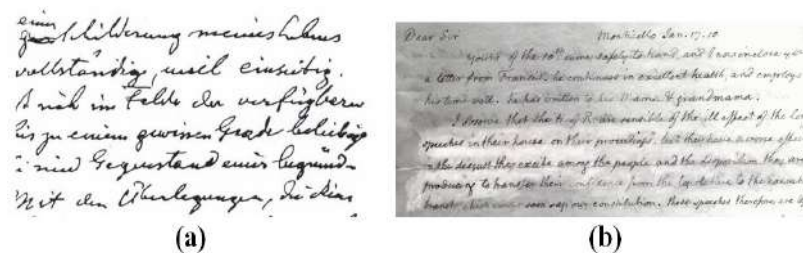 einer
Schilderung meines Lebens
vollständig, weil einseitig.
sich im Felde der verfügbaren
bis zu einem gewissen Grade beliebig
sind Gegenstand einer begründ-
Mit den Überlegungen, die
(a)
Dear Sir Monticello Jan. 17. 10
Yours of the 10th came safely to hand, and I now inclose you
a letter from Francis. he continues in excellent health, and employs
his time well. he has written to his Mama & grandmama.
I observe that the H. of R. are sensible of the ill effect of the long
speeches in their house on their proceedings. but they have a worse effect
in the disgust they excite among the people and the disposition they are
producing to transfer their confidence from the legislature to the executive
branch which would soon sap our constitution. these speeches therefore are
(b)